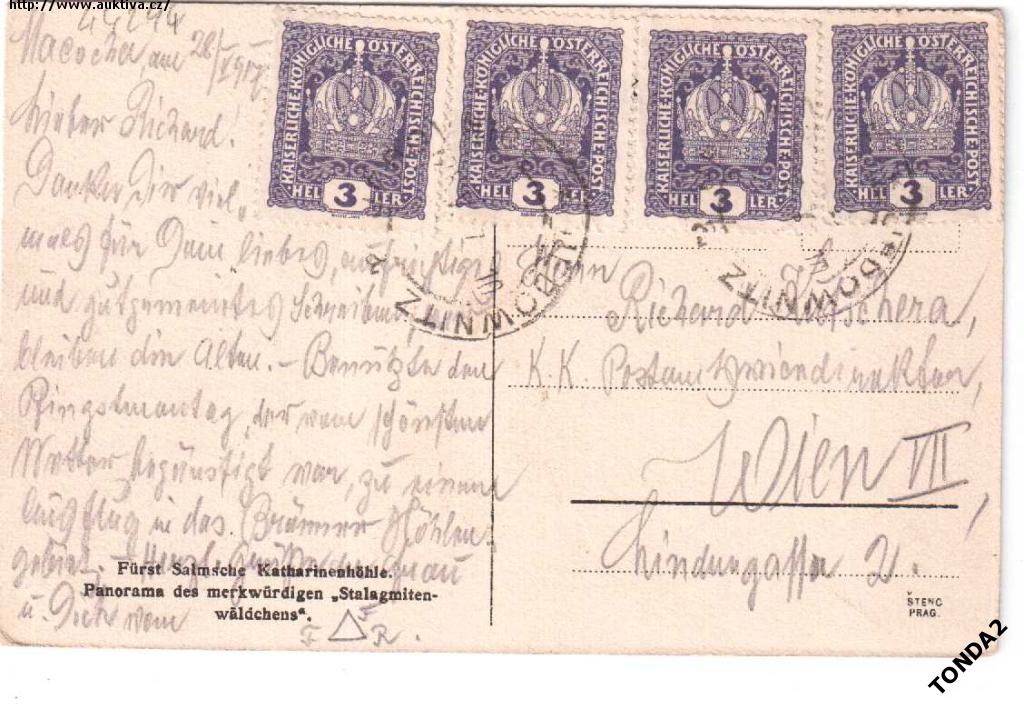 http://www.auktiva.cz/
Macocha, am 28/V 1917
Lieber Richard!
Danke Dir viel-
mals für Dein liebes, aufrichtiges
und gutgemeintes Schreiben,
bleiben die Alten. – Benützte den
Pfingstmontag, der vom schönsten
Wetter begünstigt war, zu einem
Ausflug in das Brünner Höhlen-
gebiet. – Herzl. Grüße
u. Dich vom
F R.
KAISERLICHE KÖNIGLICHE ÖSTERREICHISCHE POST
HEL 3 LER
KAISERLICHE KÖNIGLICHE ÖSTERREICHISCHE POST
HEL 3 LER
KAISERLICHE KÖNIGLICHE ÖSTERREICHISCHE POST
HEL 3 LER
KAISERLICHE KÖNIGLICHE ÖSTERREICHISCHE POST
HEL 3 LER
Richard
K. K.
Wien VII
Lindengasse 2.
Fürst Salmsche Katharinenhöhle.
Panorama des merkwürdigen „Stalagmiten-
wäldchens“.
ŠTENC
PRAG.
TONDA2